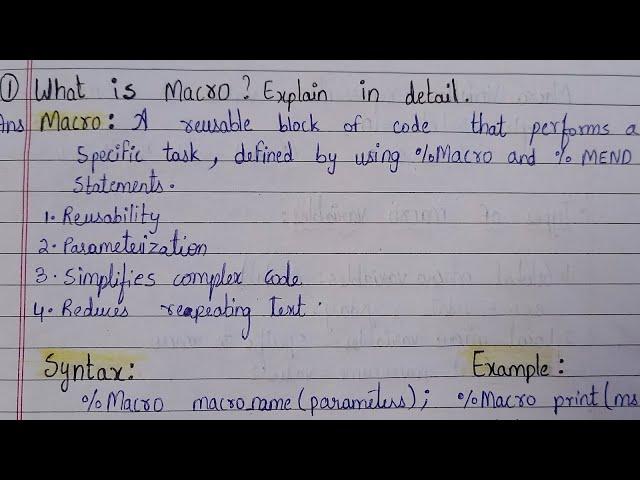 ① What is Macro? Explain in detail.
Ans Macro: A reusable block of code that performs a
Specific task, defined by using %Macro and %MEND
Statements.
1. Reusability
2. Parameterization
3. Simplifies complex code
4. Reduces reapeating text.
Syntax: Example:
%Macro macro_name(parameters); %Macro print(ms